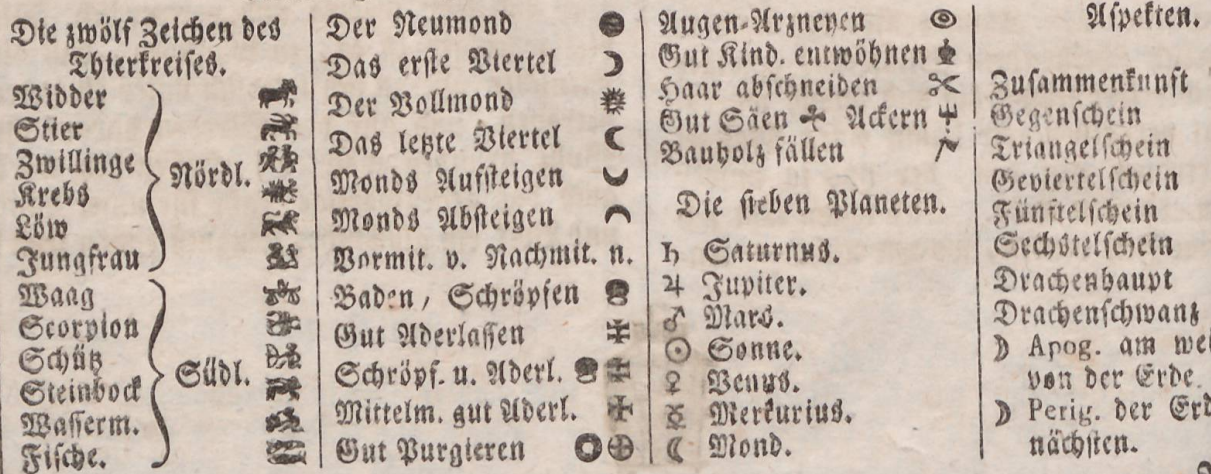 Die zwölf Zeichen des
Thierkreises.
Widder
Stier
Zwillinge
Krebs
Löw
Jungfrau
Nördl.
Waag
Scorpion
Schütz
Steinbock
Wasserm.
Fische.
Südl.
Der Neumond
Das erste Viertel
Der Vollmond
Das letzte Viertel
Monds Aufsteigen
Monds Absteigen
Vormit. v. Nachmit. n.
Baden, Schröpfen
Gut Aderlassen
Schröpf. u. Aderl.
Mittelm. gut Aderl.
Gut Purgieren
Augen-Arzneyen
Gut Kind. entwöhnen
Haar abschneiden
Gut Säen Ackern
Bauholz fällen
Die sieben Planeten.
♄ Saturnus.
♃ Jupiter.
♂ Mars.
☉ Sonne.
♀ Venus.
☿ Merkurius.
☾ Mond.
Aspekten.
Zusammenkunft
Gegenschein
Triangelschein
Geviertelschein
Fünftelschein
Sechstelschein
Drachenhaupt
Drachenschwanz
☽ Apog. am
von der Erde.
☽ Perig. der
nächsten.